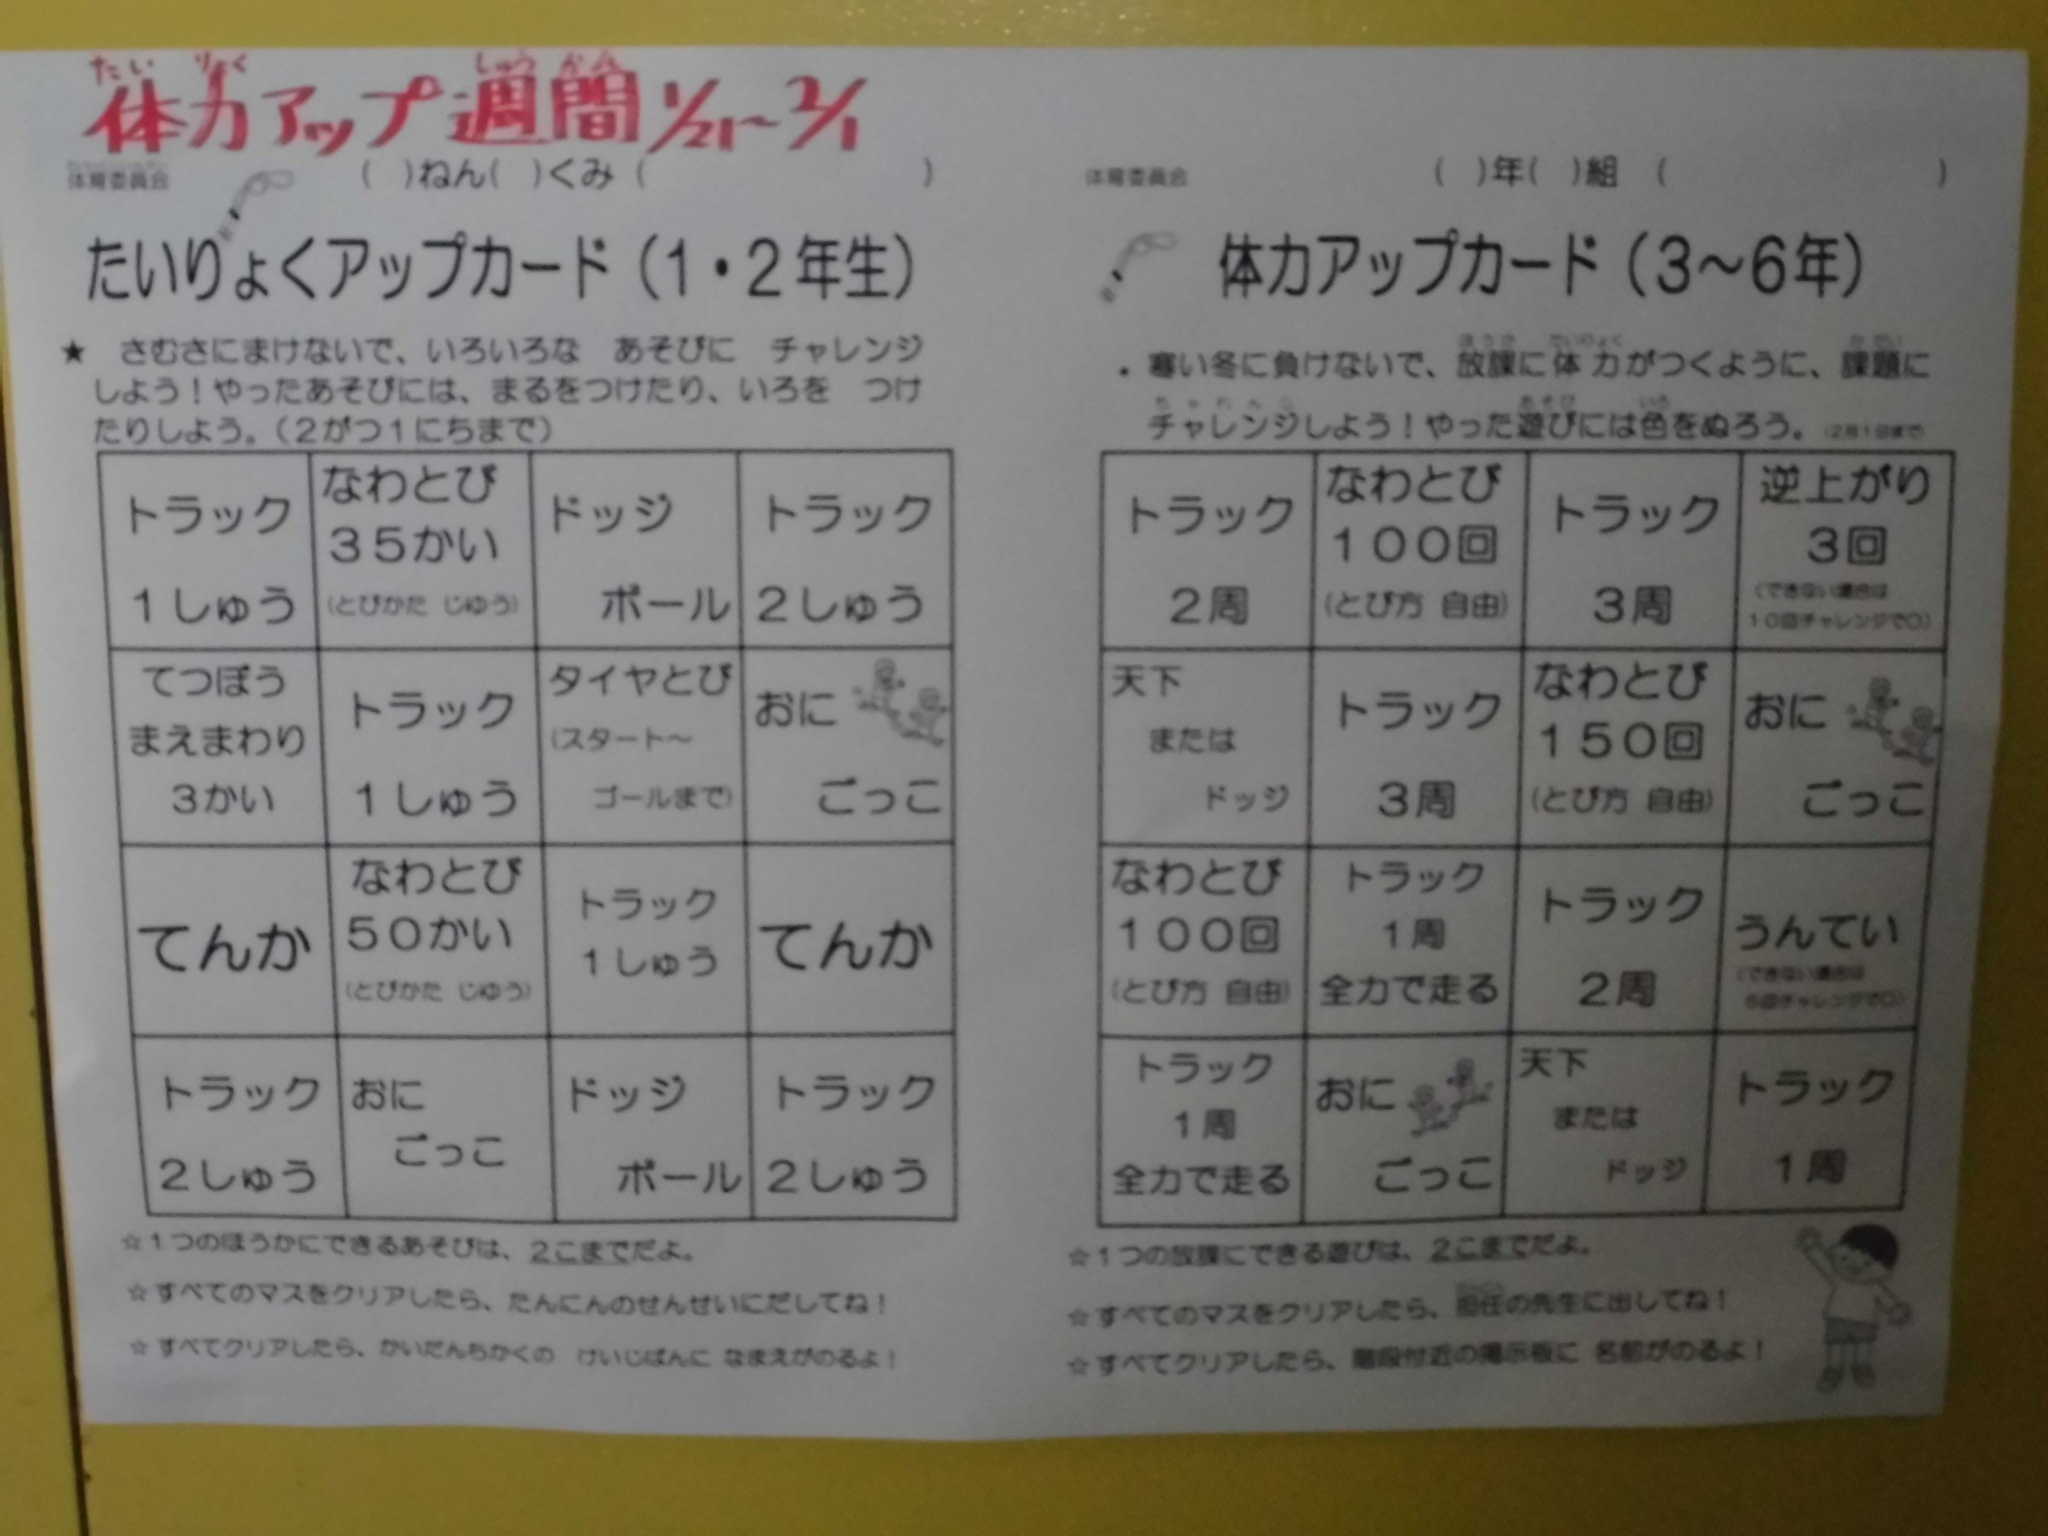 たい りょく しゅう かん
体力アップ週間 1/21~2/1
体育委員会 ( )ねん( )くみ ( )
たいりょくアップカード(1・2年生)
★ さむさにまけないで、いろいろな あそびに チャレンジ
しよう!やったあそびには、まるをつけたり、いろを つけ
たりしよう。(2がつ1にちまで)
トラック
1しゅう
なわとび
35かい
(とびかた じゆう)
ドッジ
ボール
トラック
2しゅう
てつぼう
まえまわり
3かい
トラック
1しゅう
タイヤとび
(スタート~
ゴールまで)
おに
ごっこ
てんか
なわとび
50かい
(とびかた じゆう)
トラック
1しゅう
てんか
トラック
2しゅう
おに
ごっこ
ドッジ
ボール
トラック
2しゅう
☆1つのほうかにできるあそびは、2こまでだよ。
☆すべてのマスをクリアしたら、たんにんのせんせいにだしてね!
☆すべてクリアしたら、かいだんちかくの けいじばんに なまえがのるよ!
体育委員会 ( )年( )組 ( )
体力アップカード(3~6年)
ほうか たいりょく かだい
・寒い冬に負けないで、放課に体力がつくように、課題に
ちゃれんじ あそび いろ
チャレンジしよう!やった遊びには色をぬろう。(2月1日まで)
トラック
2周
なわとび
100回
(とび方 自由)
トラック
3周
逆上がり
3回
(できない場合は
10回チャレンジで○)
天下
または
ドッジ
トラック
3周
なわとび
150回
(とび方 自由)
おに
ごっこ
なわとび
100回
(とび方 自由)
トラック
1周
全力で走る
トラック
2周
うんてい
(できない場合は
5回チャレンジで○)
トラック
1周
全力で走る
おに
ごっこ
天下
または
ドッジ
トラック
1周
☆1つの放課にできる遊びは、2こまでだよ。
☆すべてのマスをクリアしたら、担任の先生に出してね!
☆すべてクリアしたら、階段付近の掲示板に 名前がのるよ!